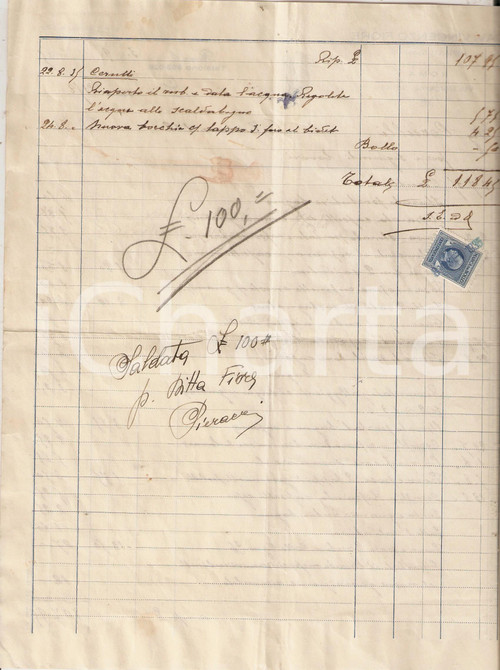 Rip. £ 107 95
22.8.35 Cerutti
Riaperto il rub e data l'acqua. Regolata
l'acqua allo scaldabagno 6 75
24.8. " Nuova borchia c/ tappo p. foro al bidet 4 25
Bollo - 50
Totale £ 118 45
£. 100,=
Saldata £ 100=
p. Ditta
iCharta